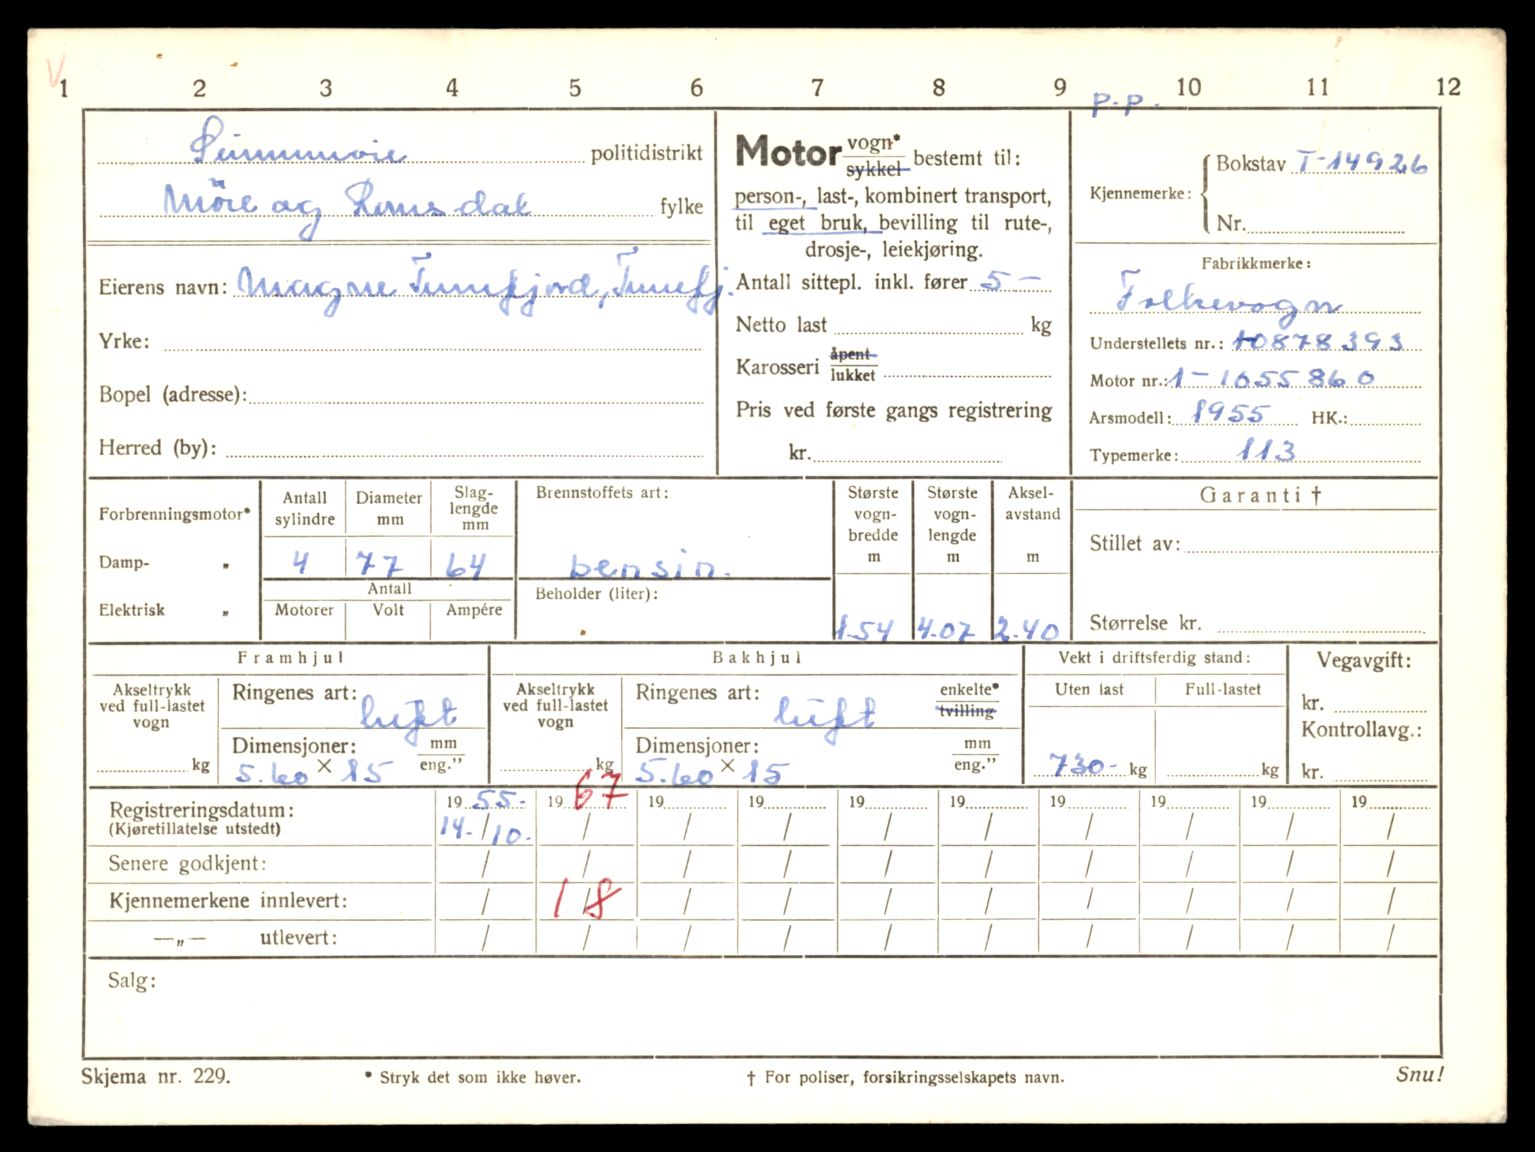 V
1 2 3 4 5 6 7 8 9 10 11 12
p.p.
Sunnmøre politidistrikt
Möre og Romsdal fylke
Eierens navn: Magne Tunefjord, Tunefj.
Yrke:
Bopel (adresse):
Herred (by):
Motor vogn* sykkel bestemt til:
person-, last-, kombinert transport,
til eget bruk, bevilling til rute-,
drosje-, leiekjøring.
Antall sittepl. inkl. fører 5-
Netto last kg
Karosseri åpent lukket
Pris ved første gangs registrering
kr.
Kjennemerke: Bokstav T-14926
Nr.
Fabrikkmerke:
Folkevogn
Understellets nr.: 10878393
Motor nr.: 1-1055860
Årsmodell: 1955 HK.:
Typemerke: 113
Forbrenningsmotor*
Damp- „
Elektrisk „
Antall sylindre Diameter mm Slaglengde mm
4 77 64
Antall
Motorer Volt Ampére
Brennstoffets art:
bensin.
Beholder (liter):
Største vognbredde m
1.54
Største vognlengde m
4.07
Akselavstand m
2.40
Garanti †
Stillet av:
Størrelse kr.
Framhjul
Akseltrykk ved full-lastet vogn
kg
Ringenes art: luft
Dimensjoner: mm eng."
5.60 × 15
Bakhjul
Akseltrykk ved full-lastet vogn
kg
Ringenes art: luft enkelte* tvilling
Dimensjoner: mm eng."
5.60 × 15
Vekt i driftsferdig stand:
Uten last Full-lastet
730- kg kg
Vegavgift:
kr.
Kontrollavg.:
kr.
Registreringsdatum: 19 55- 19 67 19 19 19 19 19 19 19 19
(Kjøretillatelse utstedt) 14.-/10. / / / / / / / / /
Senere godkjent: / / / / / / / / / /
Kjennemerkene innlevert: / 1/8 / / / / / / / /
—„— utlevert: / / / / / / / / / /
Salg:
Skjema nr. 229. * Stryk det som ikke høver. † For poliser, forsikringsselskapets navn. Snu!